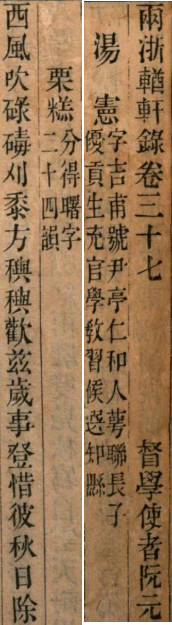 兩浙輶軒錄卷三十七 督學使者阮元
湯憲
字吉甫號尹亭仁和人萼聯長子
優貢生充官學敎習候選知縣
栗糕
分得曙字
二十四韻
西風吹碌碡刈黍方穓穓歡茲歲事登惜彼秋日除